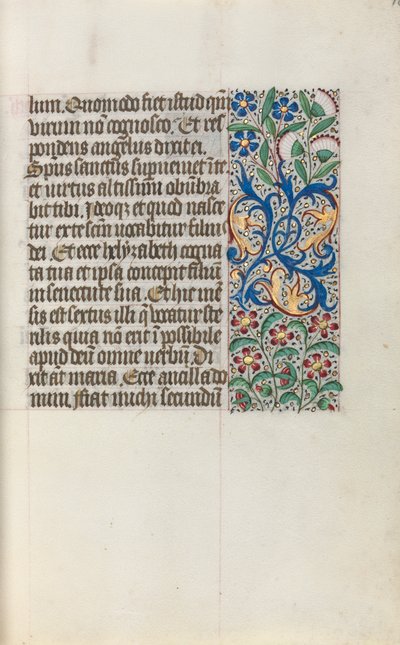 lum. Quomodo fiet istud qm̄
virum nō cognosco. Et res
pondens angelus dixit ei.
Spūs sanctus superveniet ī te
et virtus altissimi obūbra
bit tibi. Ideoq; et quod nasce
tur ex te scām vocabitur filius
dei. Et ecce helyzabeth cogna
ta tua et ipsa concepit filiū
in senectute sua. Et hic mē
sis est sextus illi q̄ vocatur ste
rilis quia nō erit īpossibile
apud deū omne verbū. Di
xit āt maria. Ecce ancilla do
mini. fiat michi secundū